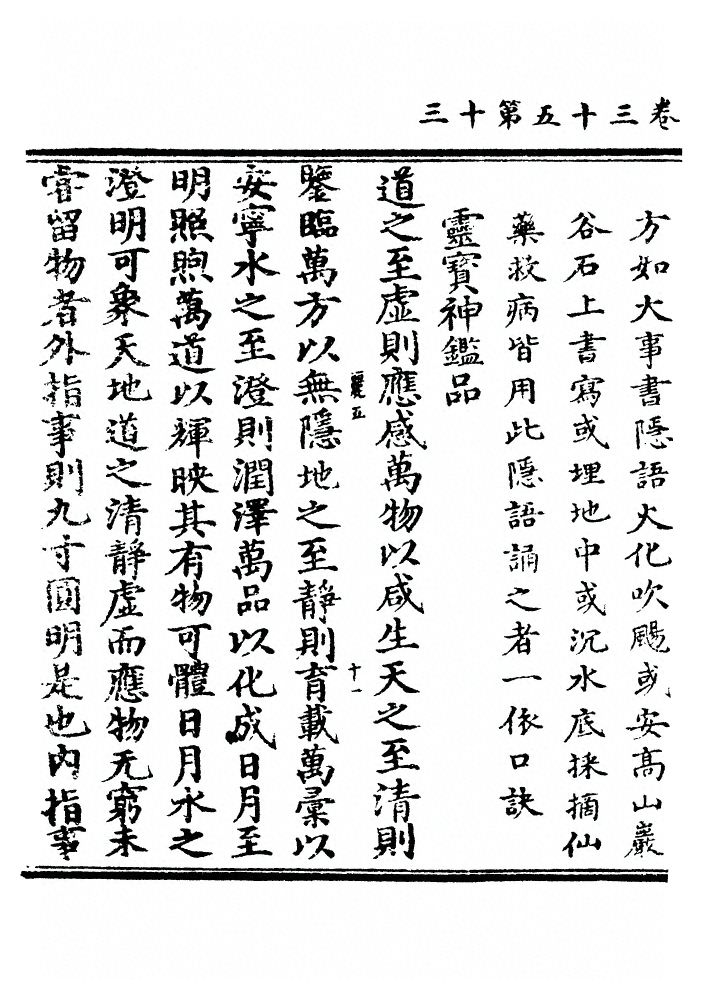 卷三十五第十三
方如火事書隱語火化吹颺或安高山巖
谷石上書寫或埋地中或沉水底採摘仙
藥救病皆用此隱語誦之者一依口訣
靈寶神鑑品
道之至虛則應感萬物以咸生天之至清則
鑒臨萬方以無隱地之至靜則育載萬彙以
十一
安寧水之至澄則潤澤萬品以化成日月至
明照煦萬道以輝映其有物可體日月水之
澄明可象天地道之清靜虛而應物无窮未
留物者外指事則九寸圓明是也內指事